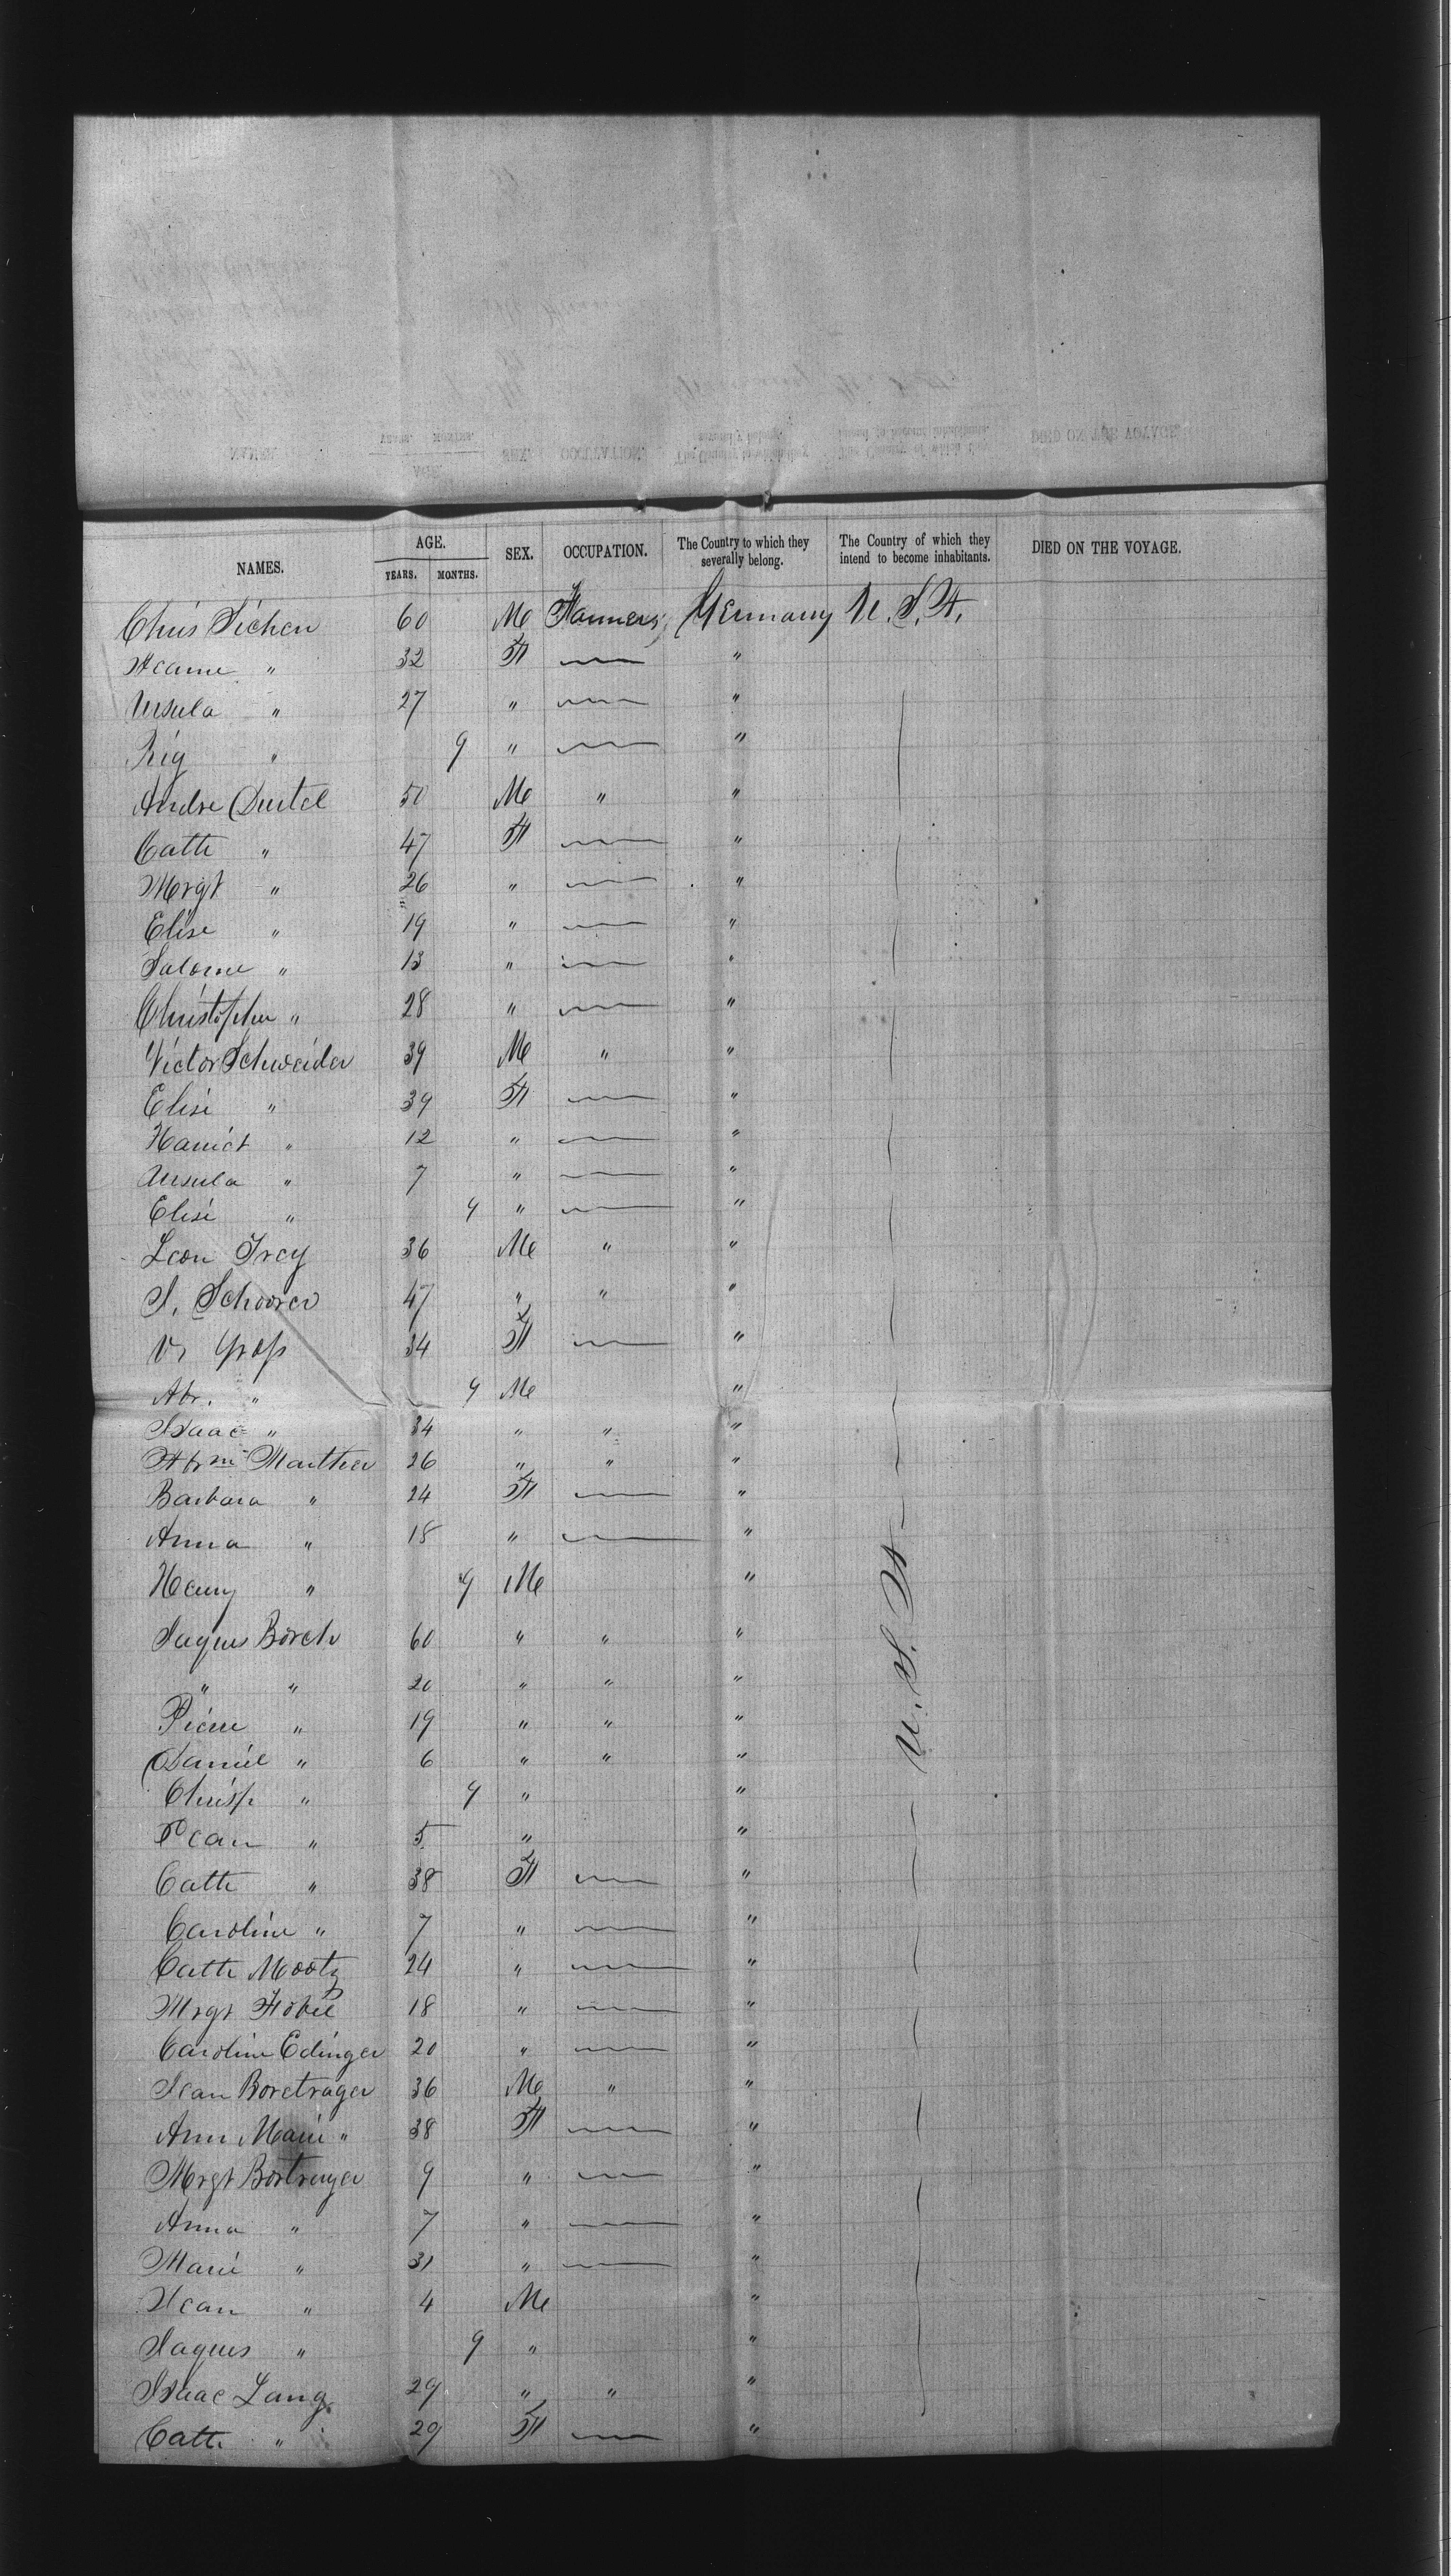 NAMES. AGE. YEARS. MONTHS. SEX. OCCUPATION. The Country to which they severally belong. The Country of which they intend to become inhabitants. DIED ON THE VOYAGE.
Chris Sichen 60 M Farmers Germany U.S.A.
32 F — "
Ursula " 27 " — "
9 " — "
Andre Dutel 50 M " "
Cath " 47 F — "
Mrgt " 26 " — "
Elise " 19 " — "
Salome " 13 " — "
Christopher " 28 " — "
Victor Schneider 39 M " "
Elise " 39 F — "
Harriet " 12 " — "
Ursula " 7 " — "
Elise " 9 " — "
Leon Frey 36 M " "
S. Schoorer 47 " " "
V. Gross 34 F — "
Abr. " 9 M "
Isaac " 34 " " "
Abm Marther 26 " " "
Barbara " 24 F — "
Anna " 18 " — "
Henry " 9 M "
Jaques Borch 60 " " "
" " 20 " " "
Pierre " 19 " " "
Daniel " 6 " " "
Christ " 9 " "
Jean " 5 " "
Cath " 38 F — "
Caroline " 7 " — "
Cath Mootz 24 " — "
Mrgt 18 " — "
Caroline Edinger 20 " — "
Jean Boretrager 36 M " "
Ann Marie " 38 F — "
Mrgt Bortrager 9 " — "
Anna " 7 " — "
Marie " 31 " — "
Jean " 4 M "
Jaques " 9 " "
Isaac Lang 29 " " "
Cath " 29 F — "
U. S. A